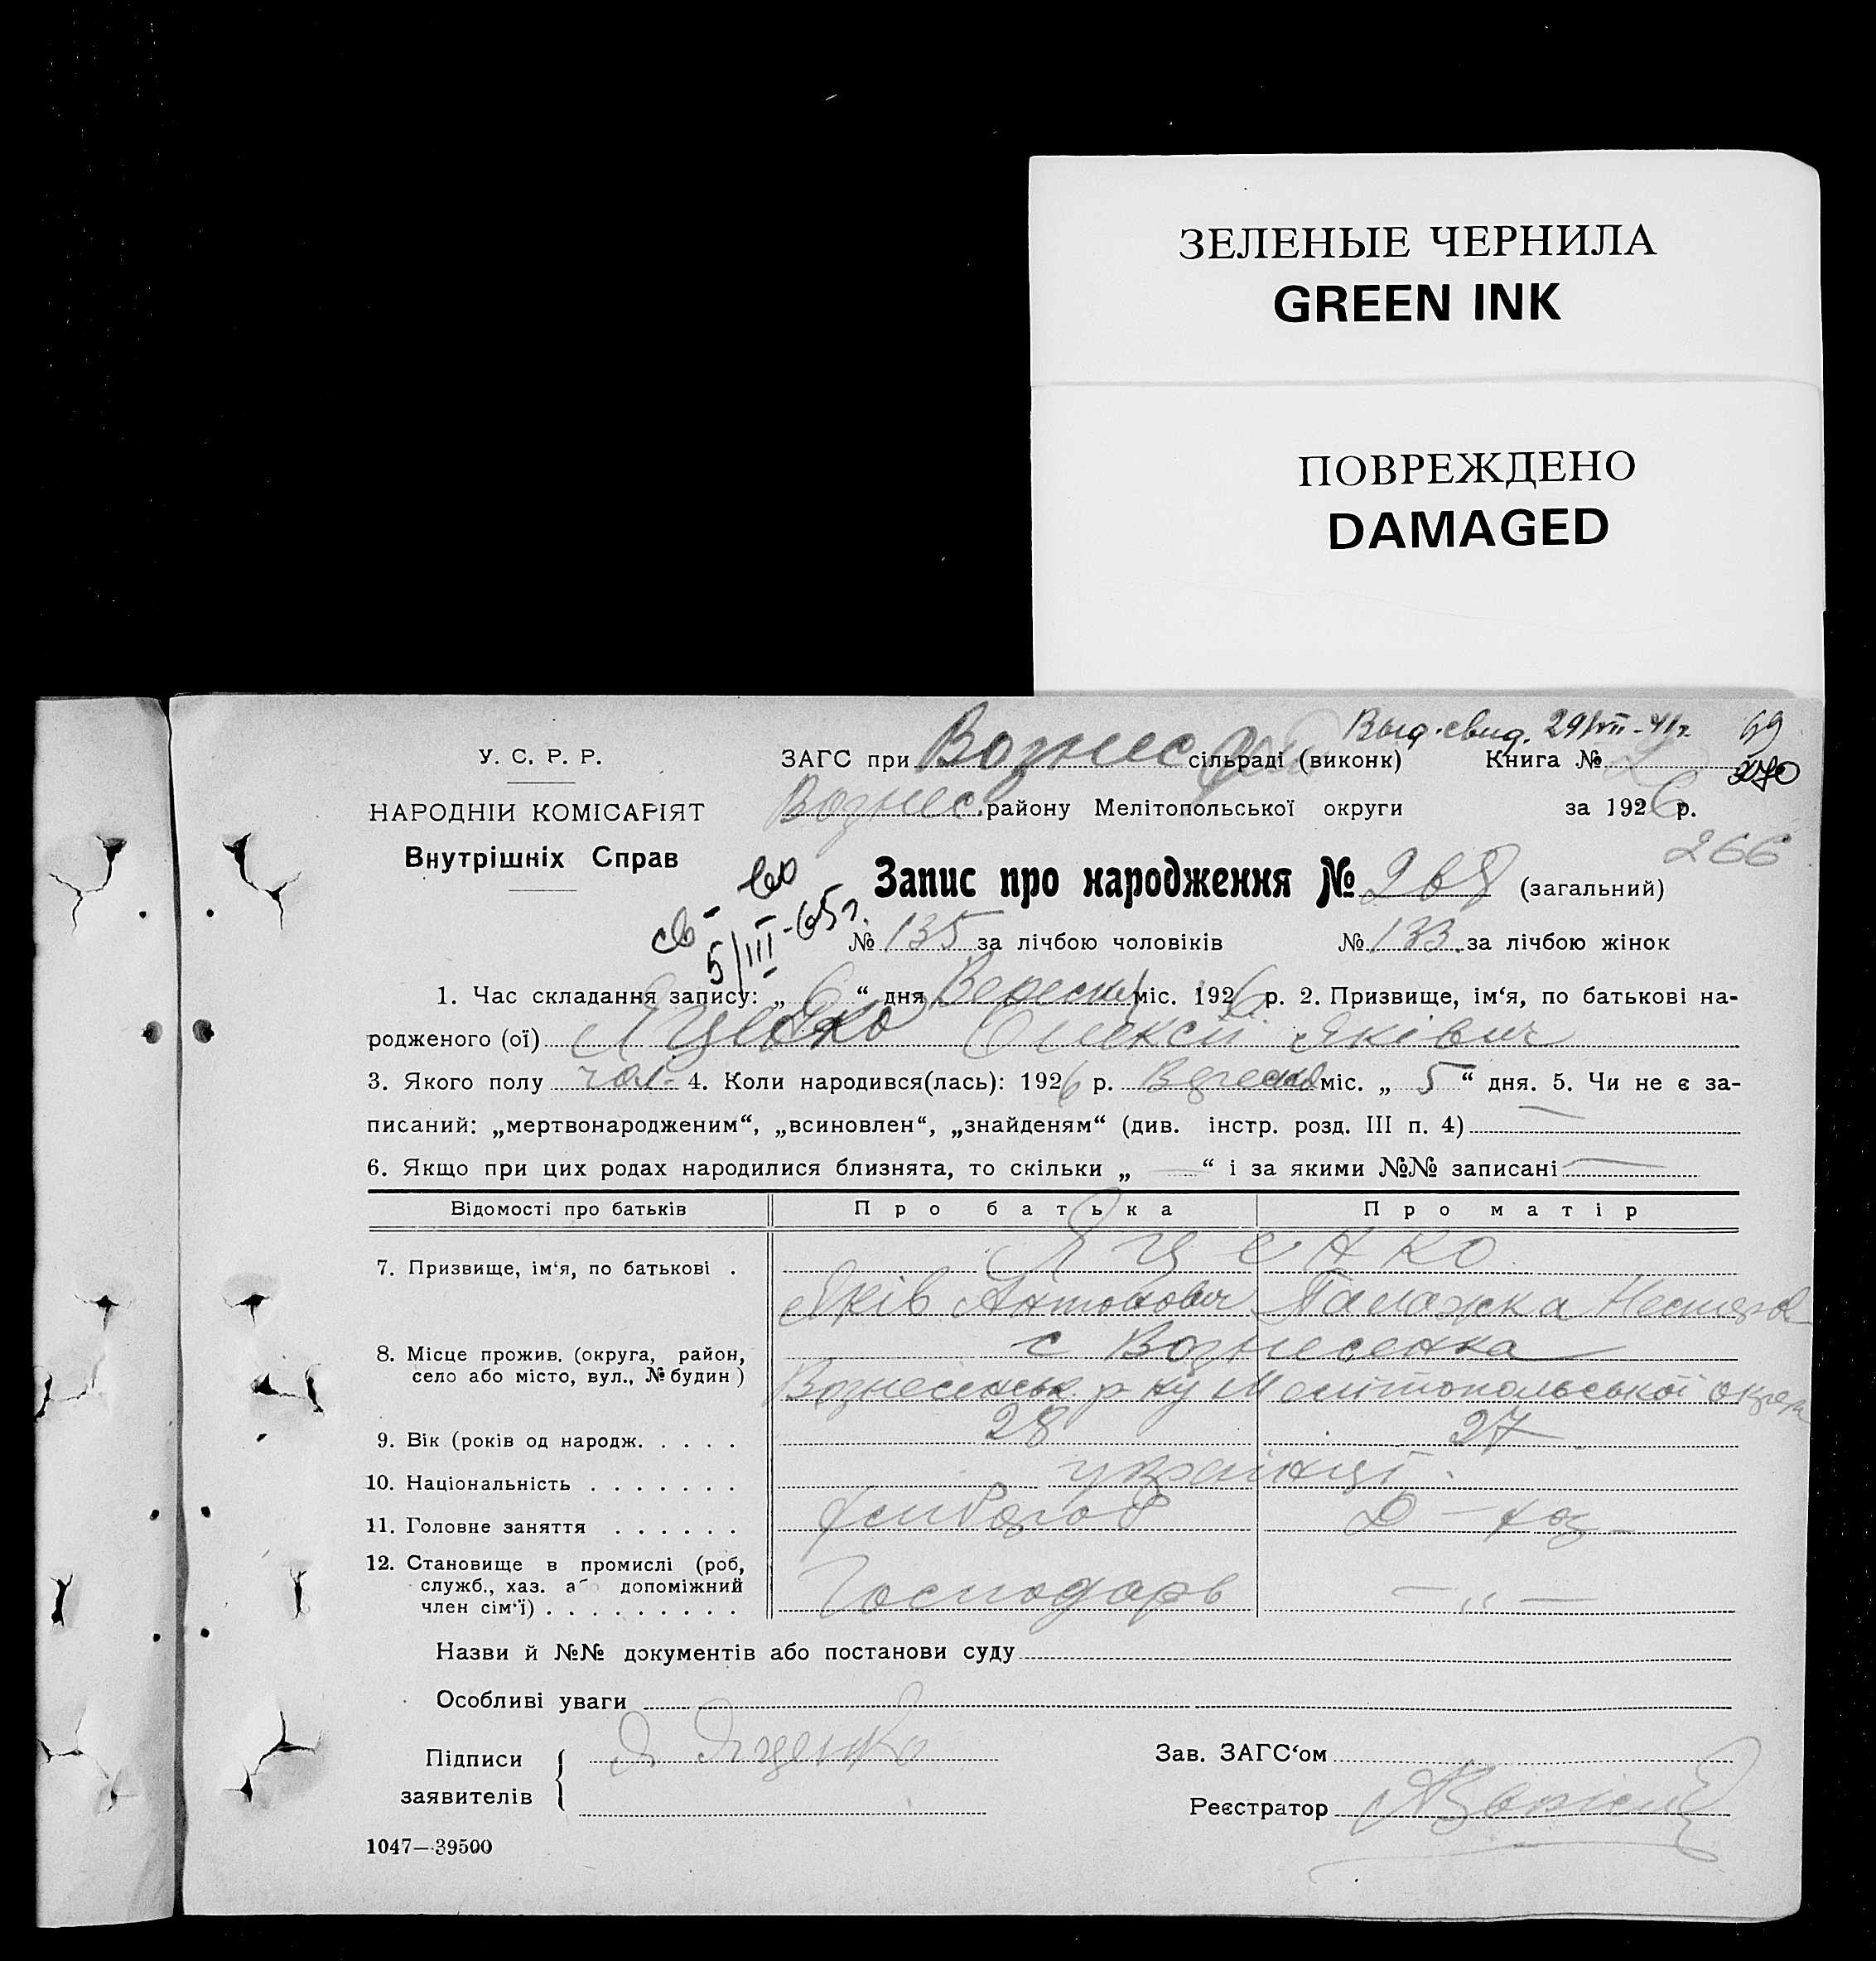 ЗЕЛЕНЫЕ ЧЕРНИЛА
GREEN INK
ПОВРЕЖДЕНО
DAMAGED
Выд. свид. 29/VII-41г. 69
У. С. Р. Р. ЗАГС при Вознес сільраді (виконк) Книга № 2 270
НАРОДНІЙ КОМІСАРІЯТ Вознес. району Мелітопольської округи за 1926 р.
266
Внутрішніх Справ Запис про народження № 268 (загальний)
св-во
5/III-65г.
№ 135 за лічбою чоловіків № 133 за лічбою жінок
1. Час складання запису: „ 6 “ дня Вересня міс. 1926 р. 2. Призвище, ім‘я, по батькові на-
родженого (ої) Яценко Олексій Яківич
3. Якого полу чол. 4. Коли народився(лась): 1926 р. Вересня міс. „ 5 “ дня. 5. Чи не є за-
писаний: „мертвонародженим“, „всиновлен“, „знайденям“ (див. інстр. розд. III п. 4) —
6. Якщо при цих родах народилися близнята, то скільки „ — “ і за якими №№ записані —
Відомості про батьків Про батька Про матір
7. Призвище, ім‘я, по батькові . Яценко
Яків Антонович Палажка
8. Місце прожив. (округа, район, с Вознесенка
село або місто, вул., № будин) Вознесенськ. р-ну Мелітопольської округи
9. Вік (років од народж. . . . . 28 27
10. Національність . . . . . . . українці.
11. Головне заняття . . . . . . хлібороб
12. Становище в промислі (роб,
служб., хаз. або допоміжний Господарь — „ —
член сім‘ї) . . . . . . . . .
Назви й №№ документів або постанови суду
Особливі уваги
Підписи Я Яценко Зав. ЗАГС‘ом
заявителів Реєстратор
1047—39500